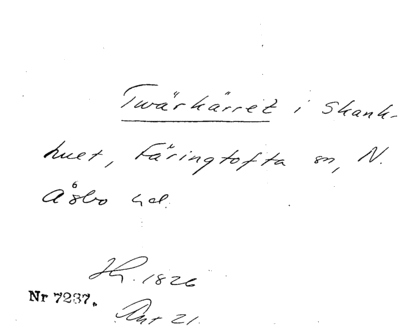 Twärkärret i Skank-
huet, Färingtofta sn, N.
Åsbo hd.
Hy. 1826
Nr 7237.
Akt 21.